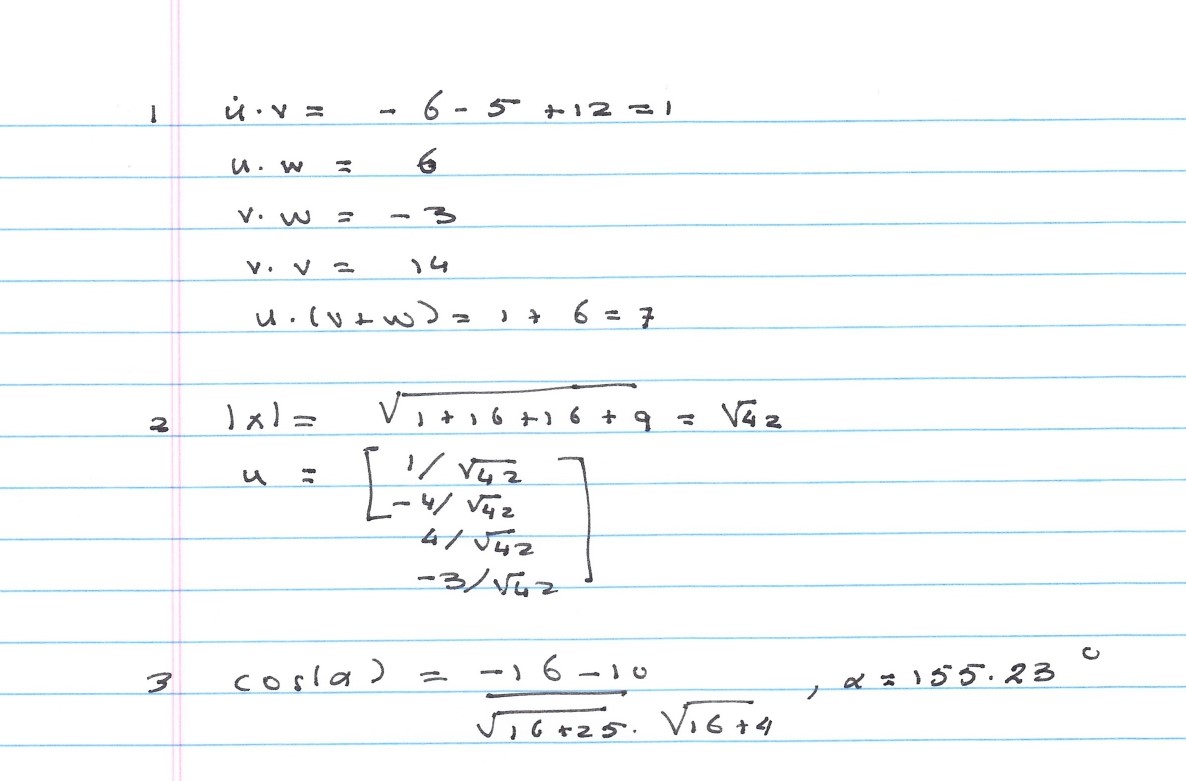 1 u·v = - 6 - 5 + 12 = 1
u·w = 6
v·w = - 3
v·v = 14
u·(v+w) = 1 + 6 = 7
2 |x| = √1+16+16+9 = √42
u = [ 1/√42
-4/√42
4/√42
-3/√42 ]
3 cos(a) = -16-10 , α = 155.23°
√16+25 · √16+4